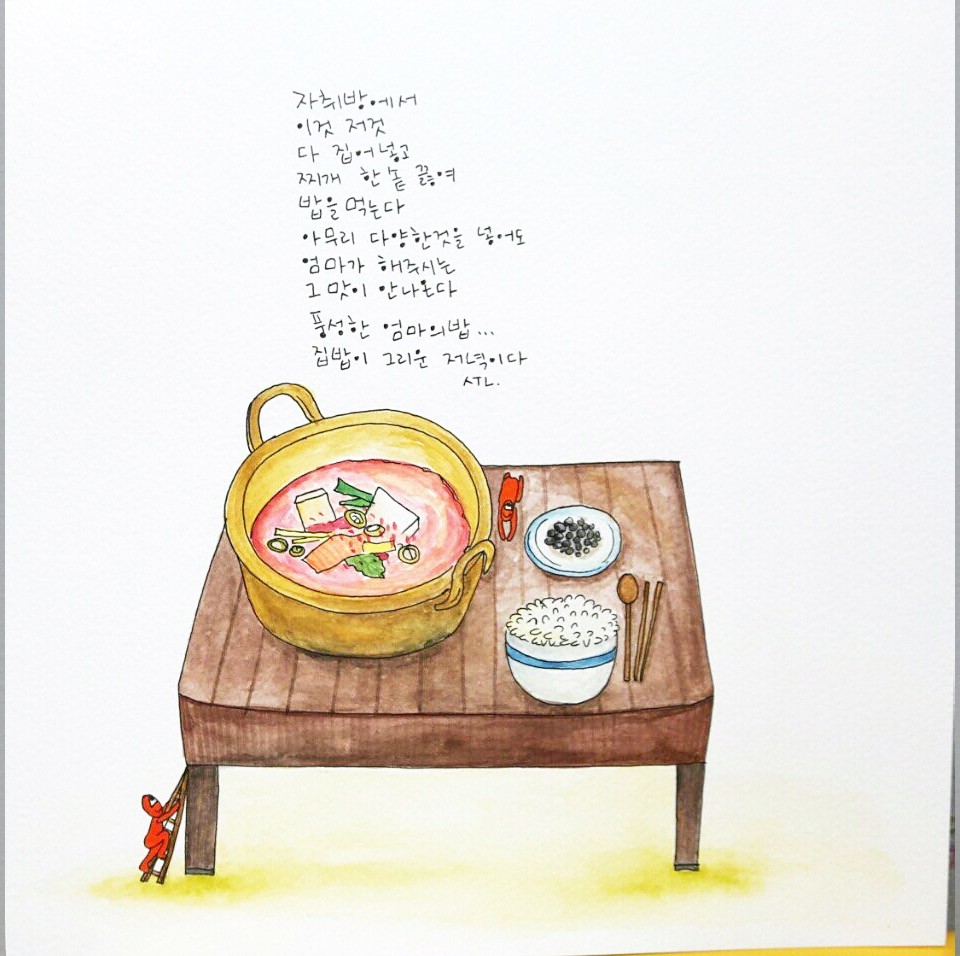 자취방에서
이것 저것
다 집어넣고
찌개 한솥 끓여
밥을 먹는다
아무리 다양한것을 넣어도
엄마가 해주시는
그 맛이 안나온다
풍성한 엄마의밥...
집밥이 그리운 저녁이다